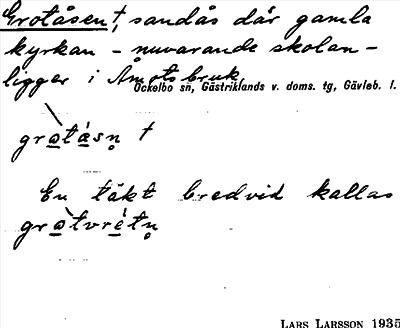 Grotåsen †, sandås där gamla
kyrkan – nuvarande skolan –
ligger i Åmotsbruk
Ockelbo sn, Gästriklands v. doms. tg, Gävleb. l.
gro̲tå̲sn̥ †
En täkt bredvid kallas
gro̲tvre̲tn̥
LARS LARSSON 1935